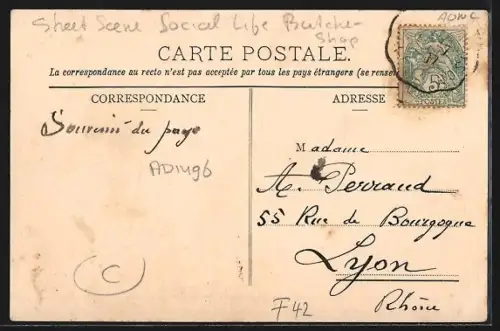 Street Scene Social Life Butcher
Shop
CARTE POSTALE.
La correspondance au recto n'est pas acceptée par tous les pays étrangers (se rensei
CORRESPONDANCE
ADRESSE
Souvenir du pays
Madame
A. Perraud
55 Rue de Bourgogne
Lyon
Rhône
C
F42
POSTES